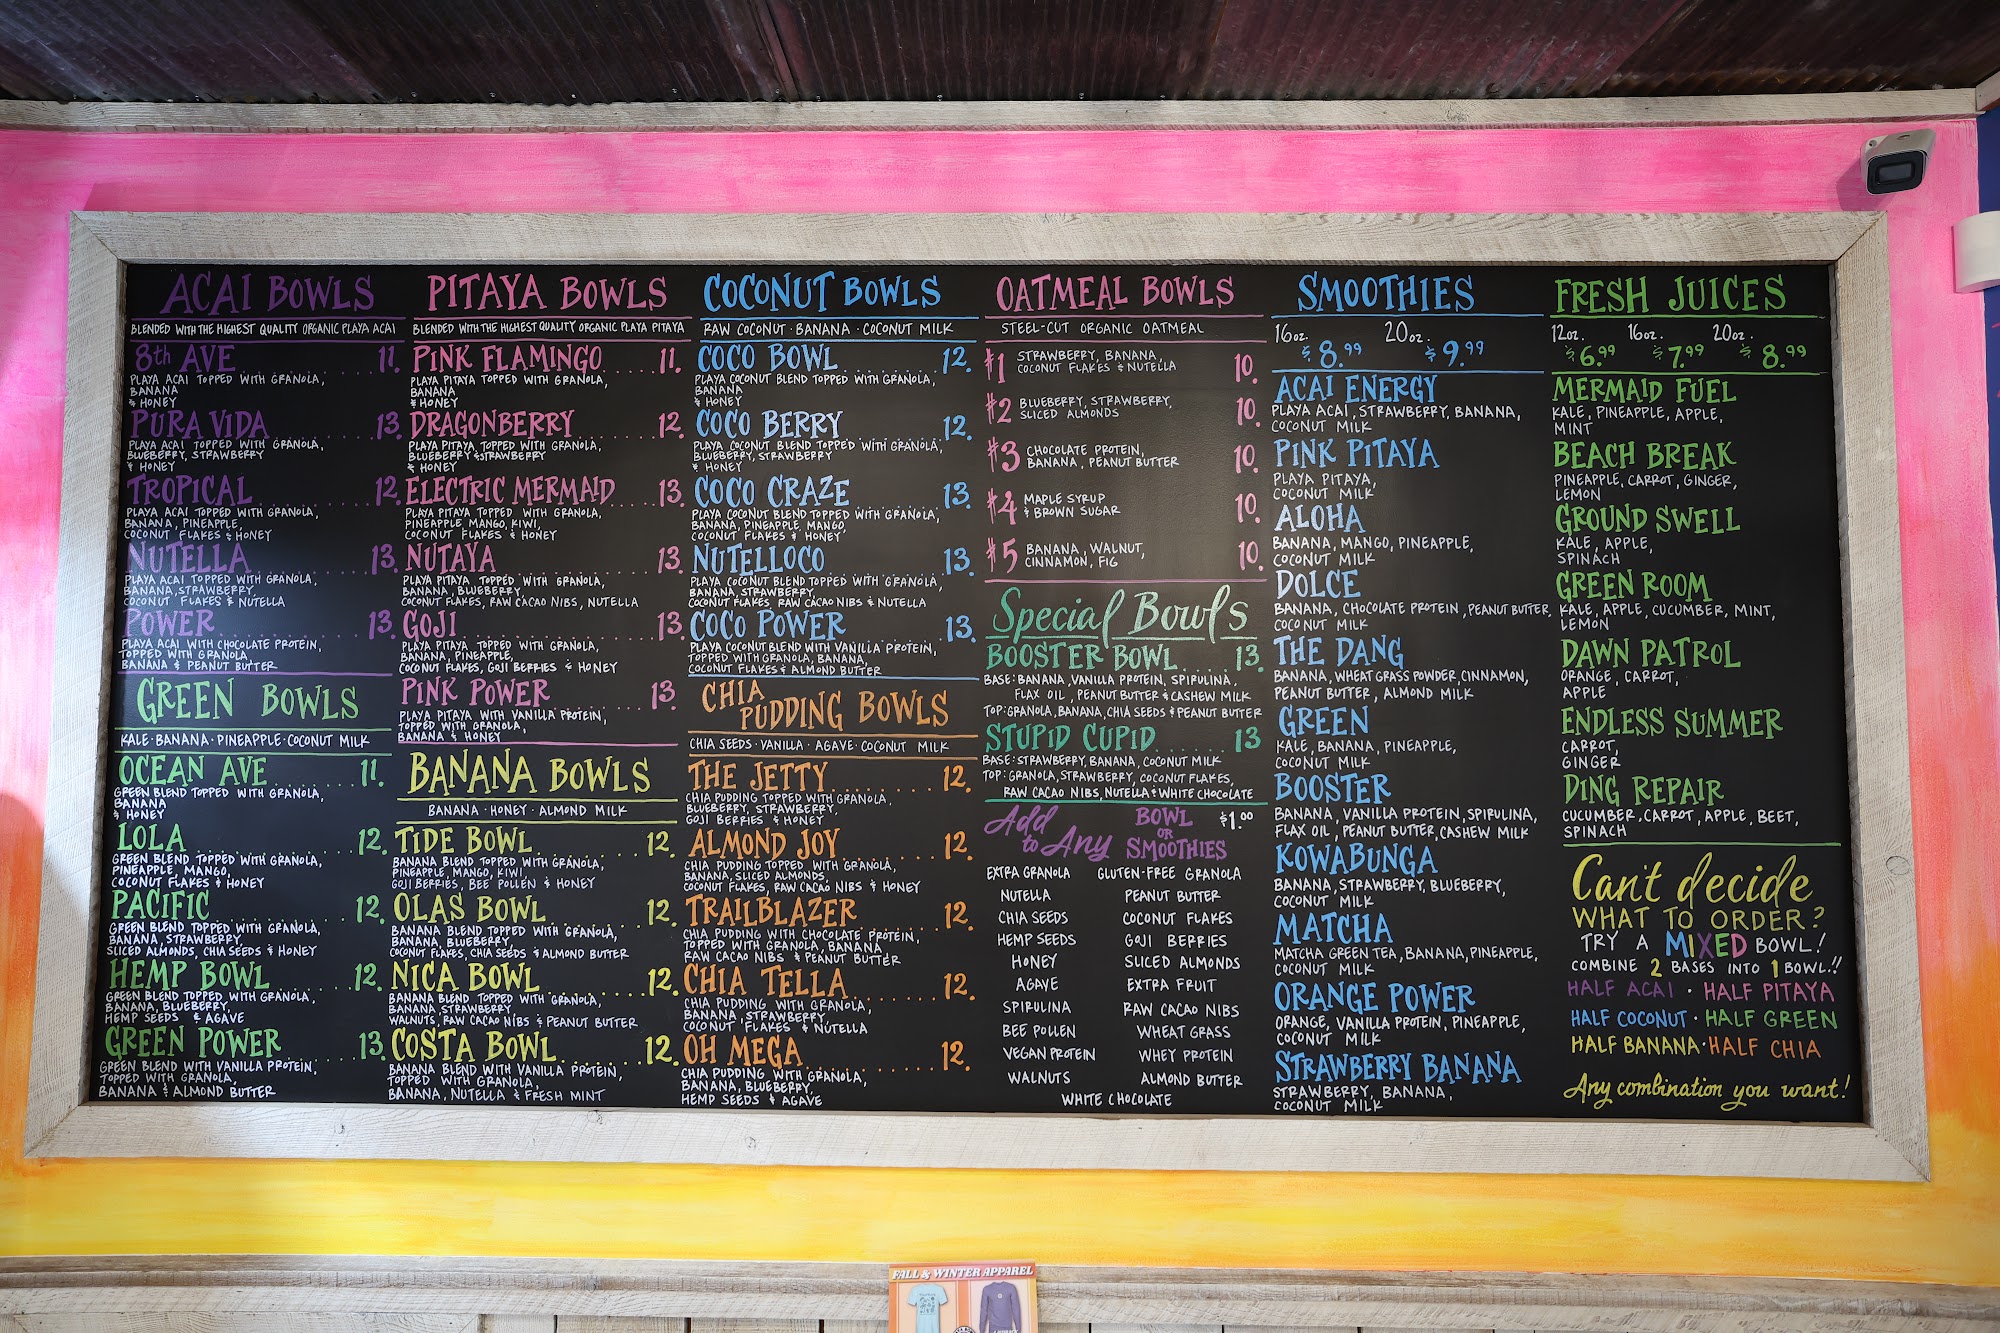 ACAI BOWLS
BLENDED WITH THE HIGHEST QUALITY ORGANIC PLAYA ACAI
8th AVE 11.
PLAYA ACAI TOPPED WITH GRANOLA,
BANANA
& HONEY
PURA VIDA 13.
PLAYA ACAI TOPPED WITH GRANOLA,
BLUEBERRY, STRAWBERRY
& HONEY
TROPICAL 12.
PLAYA ACAI TOPPED WITH GRANOLA,
BANANA, PINEAPPLE,
COCONUT FLAKES & HONEY
NUTELLA 13.
PLAYA ACAI TOPPED WITH GRANOLA,
BANANA, STRAWBERRY,
COCONUT FLAKES & NUTELLA
POWER 13.
PLAYA ACAI WITH CHOCOLATE PROTEIN,
TOPPED WITH GRANOLA
BANANA & PEANUT BUTTER
GREEN BOWLS
KALE · BANANA · PINEAPPLE · COCONUT MILK
OCEAN AVE 11.
GREEN BLEND TOPPED WITH GRANOLA,
BANANA
& HONEY
LOLA 12.
GREEN BLEND TOPPED WITH GRANOLA,
PINEAPPLE, MANGO,
COCONUT FLAKES & HONEY
PACIFIC 12.
GREEN BLEND TOPPED WITH GRANOLA,
BANANA, STRAWBERRY,
SLICED ALMONDS, CHIA SEEDS & HONEY
HEMP BOWL 12.
GREEN BLEND TOPPED WITH GRANOLA,
BANANA, BLUEBERRY,
HEMP SEEDS & AGAVE
GREEN POWER 13.
GREEN BLEND WITH VANILLA PROTEIN,
TOPPED WITH GRANOLA,
BANANA & ALMOND BUTTER
PITAYA BOWLS
BLENDED WITH THE HIGHEST QUALITY ORGANIC PLAYA PITAYA
PINK FLAMINGO 11.
PLAYA PITAYA TOPPED WITH GRANOLA,
BANANA
& HONEY
DRAGONBERRY 12.
PLAYA PITAYA TOPPED WITH GRANOLA,
BLUEBERRY & STRAWBERRY
& HONEY
ELECTRIC MERMAID 13.
PLAYA PITAYA TOPPED WITH GRANOLA,
PINEAPPLE, MANGO, KIWI,
COCONUT FLAKES & HONEY
NUTAYA 13.
PLAYA PITAYA TOPPED WITH GRANOLA,
BANANA, BLUEBERRY,
COCONUT FLAKES, RAW CACAO NIBS, NUTELLA
GOJI 13.
PLAYA PITAYA TOPPED WITH GRANOLA,
BANANA, PINEAPPLE,
COCONUT FLAKES, GOJI BERRIES & HONEY
PINK POWER 13.
PLAYA PITAYA WITH VANILLA PROTEIN,
TOPPED WITH GRANOLA,
BANANA & HONEY
BANANA BOWLS
BANANA · HONEY · ALMOND MILK
TIDE BOWL 12.
BANANA BLEND TOPPED WITH GRANOLA,
PINEAPPLE, MANGO, KIWI,
GOJI BERRIES, BEE POLLEN & HONEY
OLAS BOWL 12.
BANANA BLEND TOPPED WITH GRANOLA,
BANANA, BLUEBERRY,
COCONUT FLAKES, CHIA SEEDS & ALMOND BUTTER
NICA BOWL 12.
BANANA BLEND TOPPED WITH GRANOLA,
BANANA, STRAWBERRY,
WALNUTS, RAW CACAO NIBS & PEANUT BUTTER
COSTA BOWL 12.
BANANA BLEND WITH VANILLA PROTEIN,
TOPPED WITH GRANOLA,
BANANA, NUTELLA & FRESH MINT
COCONUT BOWLS
RAW COCONUT · BANANA · COCONUT MILK
COCO BOWL 12.
PLAYA COCONUT BLEND TOPPED WITH GRANOLA,
BANANA
& HONEY
COCO BERRY 12.
PLAYA COCONUT BLEND TOPPED WITH GRANOLA,
BLUEBERRY, STRAWBERRY
& HONEY
COCO CRAZE 13.
PLAYA COCONUT BLEND TOPPED WITH GRANOLA,
BANANA, PINEAPPLE, MANGO,
COCONUT FLAKES & HONEY
NUTELLOCO 13.
PLAYA COCONUT BLEND TOPPED WITH GRANOLA,
BANANA, STRAWBERRY,
COCONUT FLAKES, RAW CACAO NIBS & NUTELLA
COCO POWER 13.
PLAYA COCONUT BLEND WITH VANILLA PROTEIN,
TOPPED WITH GRANOLA, BANANA,
COCONUT FLAKES & ALMOND BUTTER
CHIA PUDDING BOWLS
CHIA SEEDS · VANILLA · AGAVE · COCONUT MILK
THE JETTY 12.
CHIA PUDDING TOPPED WITH GRANOLA,
BLUEBERRY, STRAWBERRY,
GOJI BERRIES & HONEY
ALMOND JOY 12.
CHIA PUDDING TOPPED WITH GRANOLA,
BANANA, SLICED ALMONDS,
COCONUT FLAKES, RAW CACAO NIBS & HONEY
TRAILBLAZER 12.
CHIA PUDDING WITH CHOCOLATE PROTEIN,
TOPPED WITH GRANOLA, BANANA,
RAW CACAO NIBS & PEANUT BUTTER
CHIA TELLA 12.
CHIA PUDDING WITH GRANOLA,
BANANA, STRAWBERRY,
COCONUT FLAKES & NUTELLA
OH MEGA 12.
CHIA PUDDING WITH GRANOLA,
BANANA, BLUEBERRY,
HEMP SEEDS & AGAVE
OATMEAL BOWLS
STEEL-CUT ORGANIC OATMEAL
#1 STRAWBERRY, BANANA,
COCONUT FLAKES & NUTELLA 10.
#2 BLUEBERRY, STRAWBERRY,
SLICED ALMONDS 10.
#3 CHOCOLATE PROTEIN,
BANANA, PEANUT BUTTER 10.
#4 MAPLE SYRUP
& BROWN SUGAR 10.
#5 BANANA, WALNUT,
CINNAMON, FIG 10.
Special Bowls
BOOSTER BOWL 13.
BASE: BANANA, VANILLA PROTEIN, SPIRULINA,
FLAX OIL, PEANUT BUTTER & CASHEW MILK
TOP: GRANOLA, BANANA, CHIA SEEDS & PEANUT BUTTER
STUPID CUPID 13
BASE: STRAWBERRY, BANANA, COCONUT MILK
TOP: GRANOLA, STRAWBERRY, COCONUT FLAKES,
RAW CACAO NIBS, NUTELLA & WHITE CHOCOLATE
Add to Any BOWL OR SMOOTHIES $1.00
EXTRA GRANOLA GLUTEN-FREE GRANOLA
NUTELLA PEANUT BUTTER
CHIA SEEDS COCONUT FLAKES
HEMP SEEDS GOJI BERRIES
HONEY SLICED ALMONDS
AGAVE EXTRA FRUIT
SPIRULINA RAW CACAO NIBS
BEE POLLEN WHEAT GRASS
VEGAN PROTEIN WHEY PROTEIN
WALNUTS ALMOND BUTTER
WHITE CHOCOLATE
SMOOTHIES
16oz. 20oz.
$8.99 $9.99
ACAI ENERGY
PLAYA ACAI, STRAWBERRY, BANANA,
COCONUT MILK
PINK PITAYA
PLAYA PITAYA,
COCONUT MILK
ALOHA
BANANA, MANGO, PINEAPPLE,
COCONUT MILK
DOLCE
BANANA, CHOCOLATE PROTEIN, PEANUT BUTTER,
COCONUT MILK
THE DANG
BANANA, WHEAT GRASS POWDER, CINNAMON,
PEANUT BUTTER, ALMOND MILK
GREEN
KALE, BANANA, PINEAPPLE,
COCONUT MILK
BOOSTER
BANANA, VANILLA PROTEIN, SPIRULINA,
FLAX OIL, PEANUT BUTTER, CASHEW MILK
KOWABUNGA
BANANA, STRAWBERRY, BLUEBERRY,
COCONUT MILK
MATCHA
MATCHA GREEN TEA, BANANA, PINEAPPLE,
COCONUT MILK
ORANGE POWER
ORANGE, VANILLA PROTEIN, PINEAPPLE,
COCONUT MILK
STRAWBERRY BANANA
STRAWBERRY, BANANA,
COCONUT MILK
FRESH JUICES
12oz. 16oz. 20oz.
$6.99 $7.99 $8.99
MERMAID FUEL
KALE, PINEAPPLE, APPLE,
MINT
BEACH BREAK
PINEAPPLE, CARROT, GINGER,
LEMON
GROUND SWELL
KALE, APPLE,
SPINACH
GREEN ROOM
KALE, APPLE, CUCUMBER, MINT,
LEMON
DAWN PATROL
ORANGE, CARROT,
APPLE
ENDLESS SUMMER
CARROT,
GINGER
DING REPAIR
CUCUMBER, CARROT, APPLE, BEET,
SPINACH
Can't decide
WHAT TO ORDER?
TRY A MIXED BOWL!
COMBINE 2 BASES INTO 1 BOWL!!
HALF ACAI · HALF PITAYA
HALF COCONUT · HALF GREEN
HALF BANANA · HALF CHIA
Any combination you want!
FALL & WINTER APPAREL